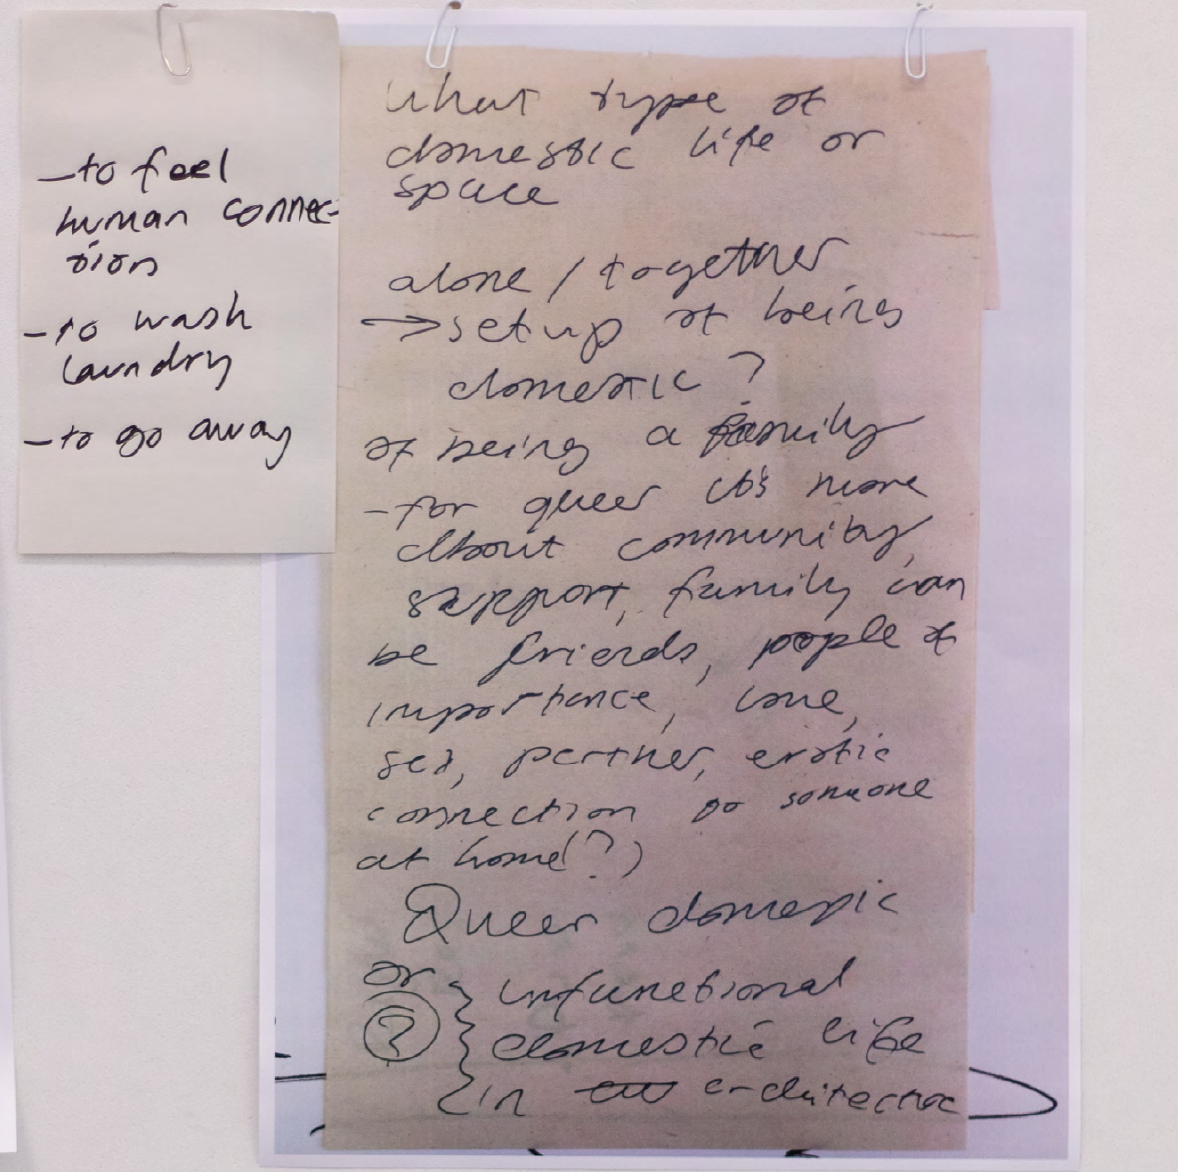 -to feel
human connec-
tion
-to wash
laundry
-to go away
What type of
domestic life or
space
alone / together
→ setup of being
domestic?
of being a family
-for queer it's more
about community,
support, family can
be friends, people of
importance, love,
sex, partner, erotic
connection to someone
at home(?)
Queer domestic
or
?
unfunctional
domestic life
in architecture